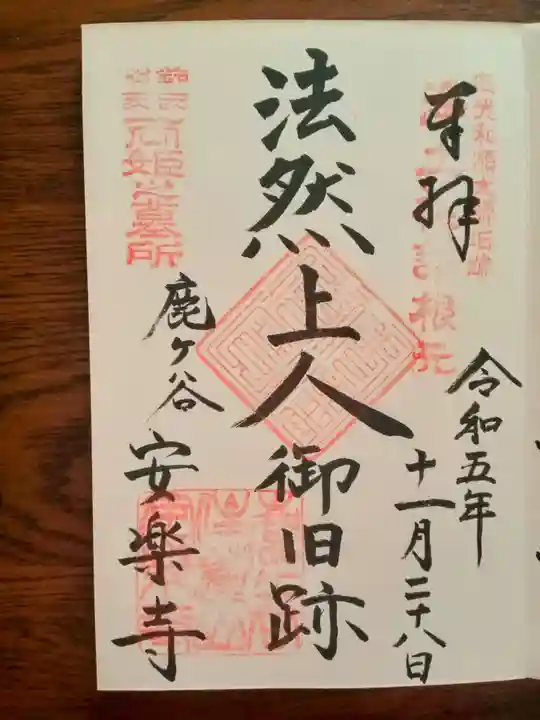 奉拝
令和五年
十一月二十八日
法然上人御旧跡
鹿ヶ谷
安楽寺
両姫之墓所
根元